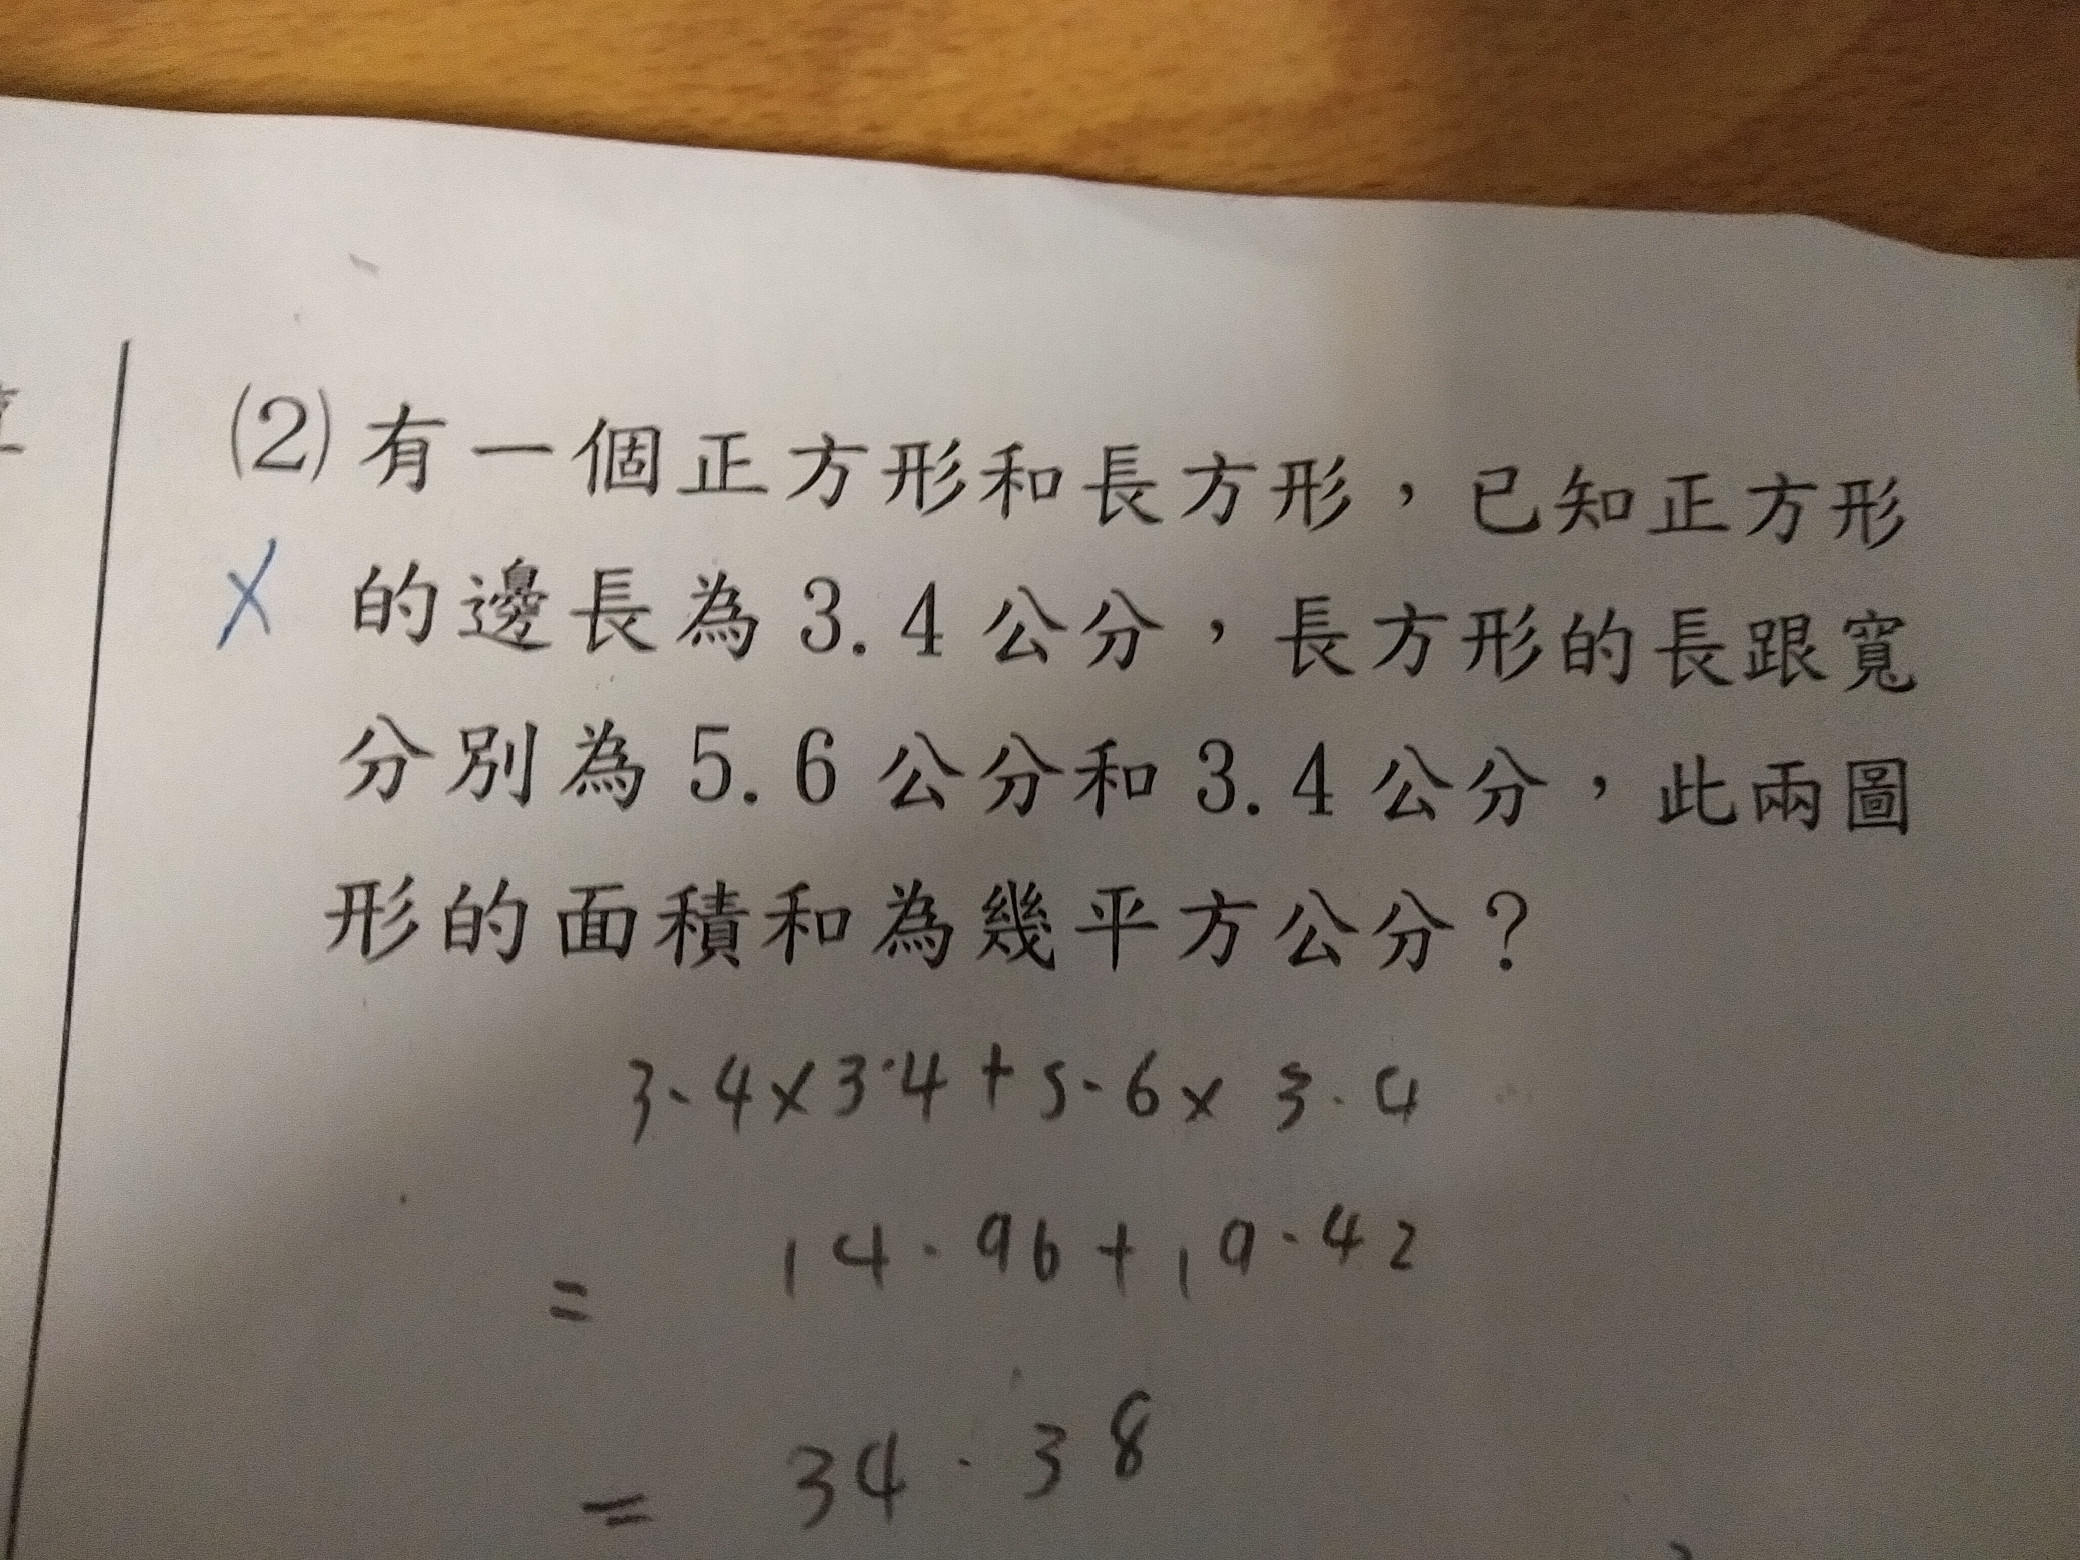 (2)有一個正方形和長方形，已知正方形
的邊長為3.4公分，長方形的長跟寬
分別為5.6公分和3.4公分，此兩圖
形的面積和為幾平方公分？
3.4×3.4+5.6×3.4
= 14.96+19.42
= 34.38